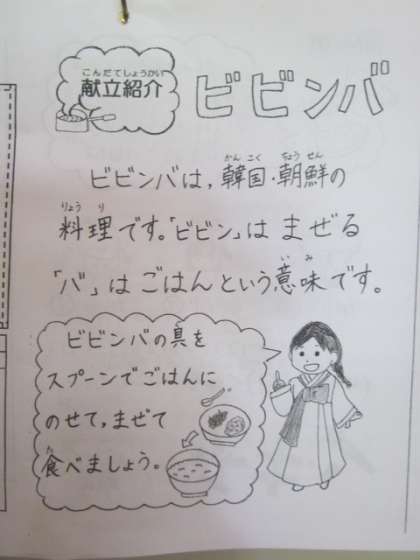 こんだてしょうかい
献立紹介
ビビンバ
かん こく ちょう せん
ビビンバは,韓国・朝鮮の
りょう り
料理です。「ビビン」は まぜる
い み
「バ」は ごはんという意味です。
ビビンバの具を
スプーンでごはんに
のせて,まぜて
た
食べましょう。